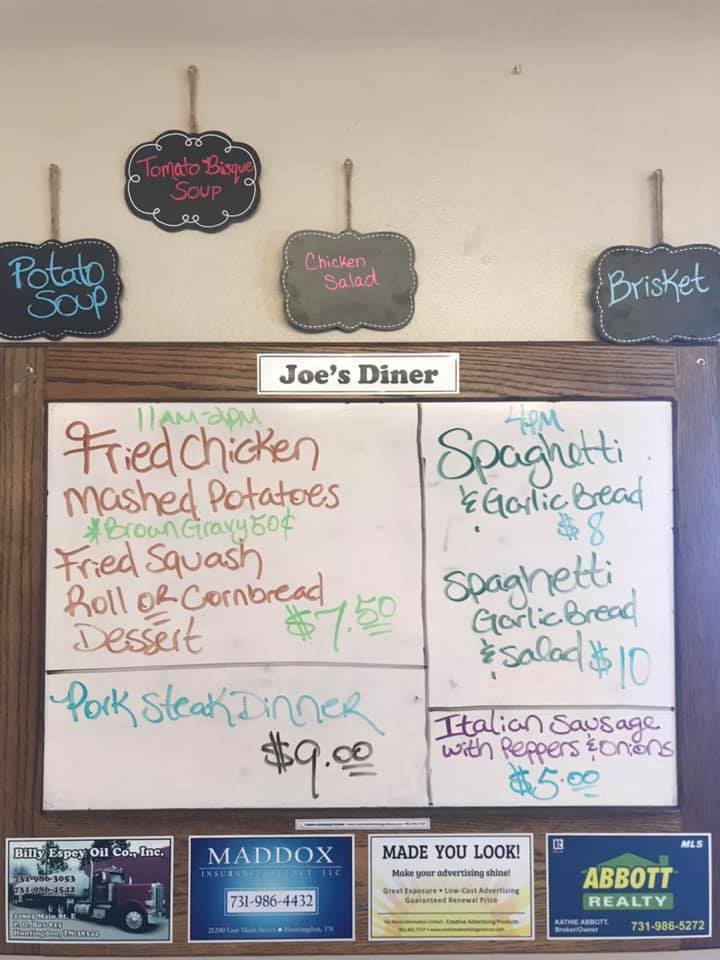 Tomato Bisque
Soup
Potato
Soup
Chicken
Salad
Brisket
Joe's Diner
11AM-2PM
Fried Chicken
Mashed Potatoes
*Brown Gravy 50¢
Fried Squash
Roll or Cornbread
Dessert
$7.50
Pork Steak Dinner
$9.00
4PM
Spaghetti
& Garlic Bread
$8
Spaghetti
Garlic Bread
& Salad $10
Italian Sausage
with Peppers & Onions
$5.00
Billy Espey Oil Co., Inc.
731-986-3053
731-986-4542
Main St. E
P.O. Box
Huntingdon, TN 38344
MADDOX
INSURANCE AGENCY LLC
731-986-4432
21290 East Main Street • Huntingdon, TN
MADE YOU LOOK!
Make your advertising shine!
Great Exposure • Low-Cost Advertising
Guaranteed Renewal Price
For More Information Contact: Creative Advertising Products
R
MLS
ABBOTT
REALTY
KATHIE ABBOTT,
Broker/Owner
731-986-5272